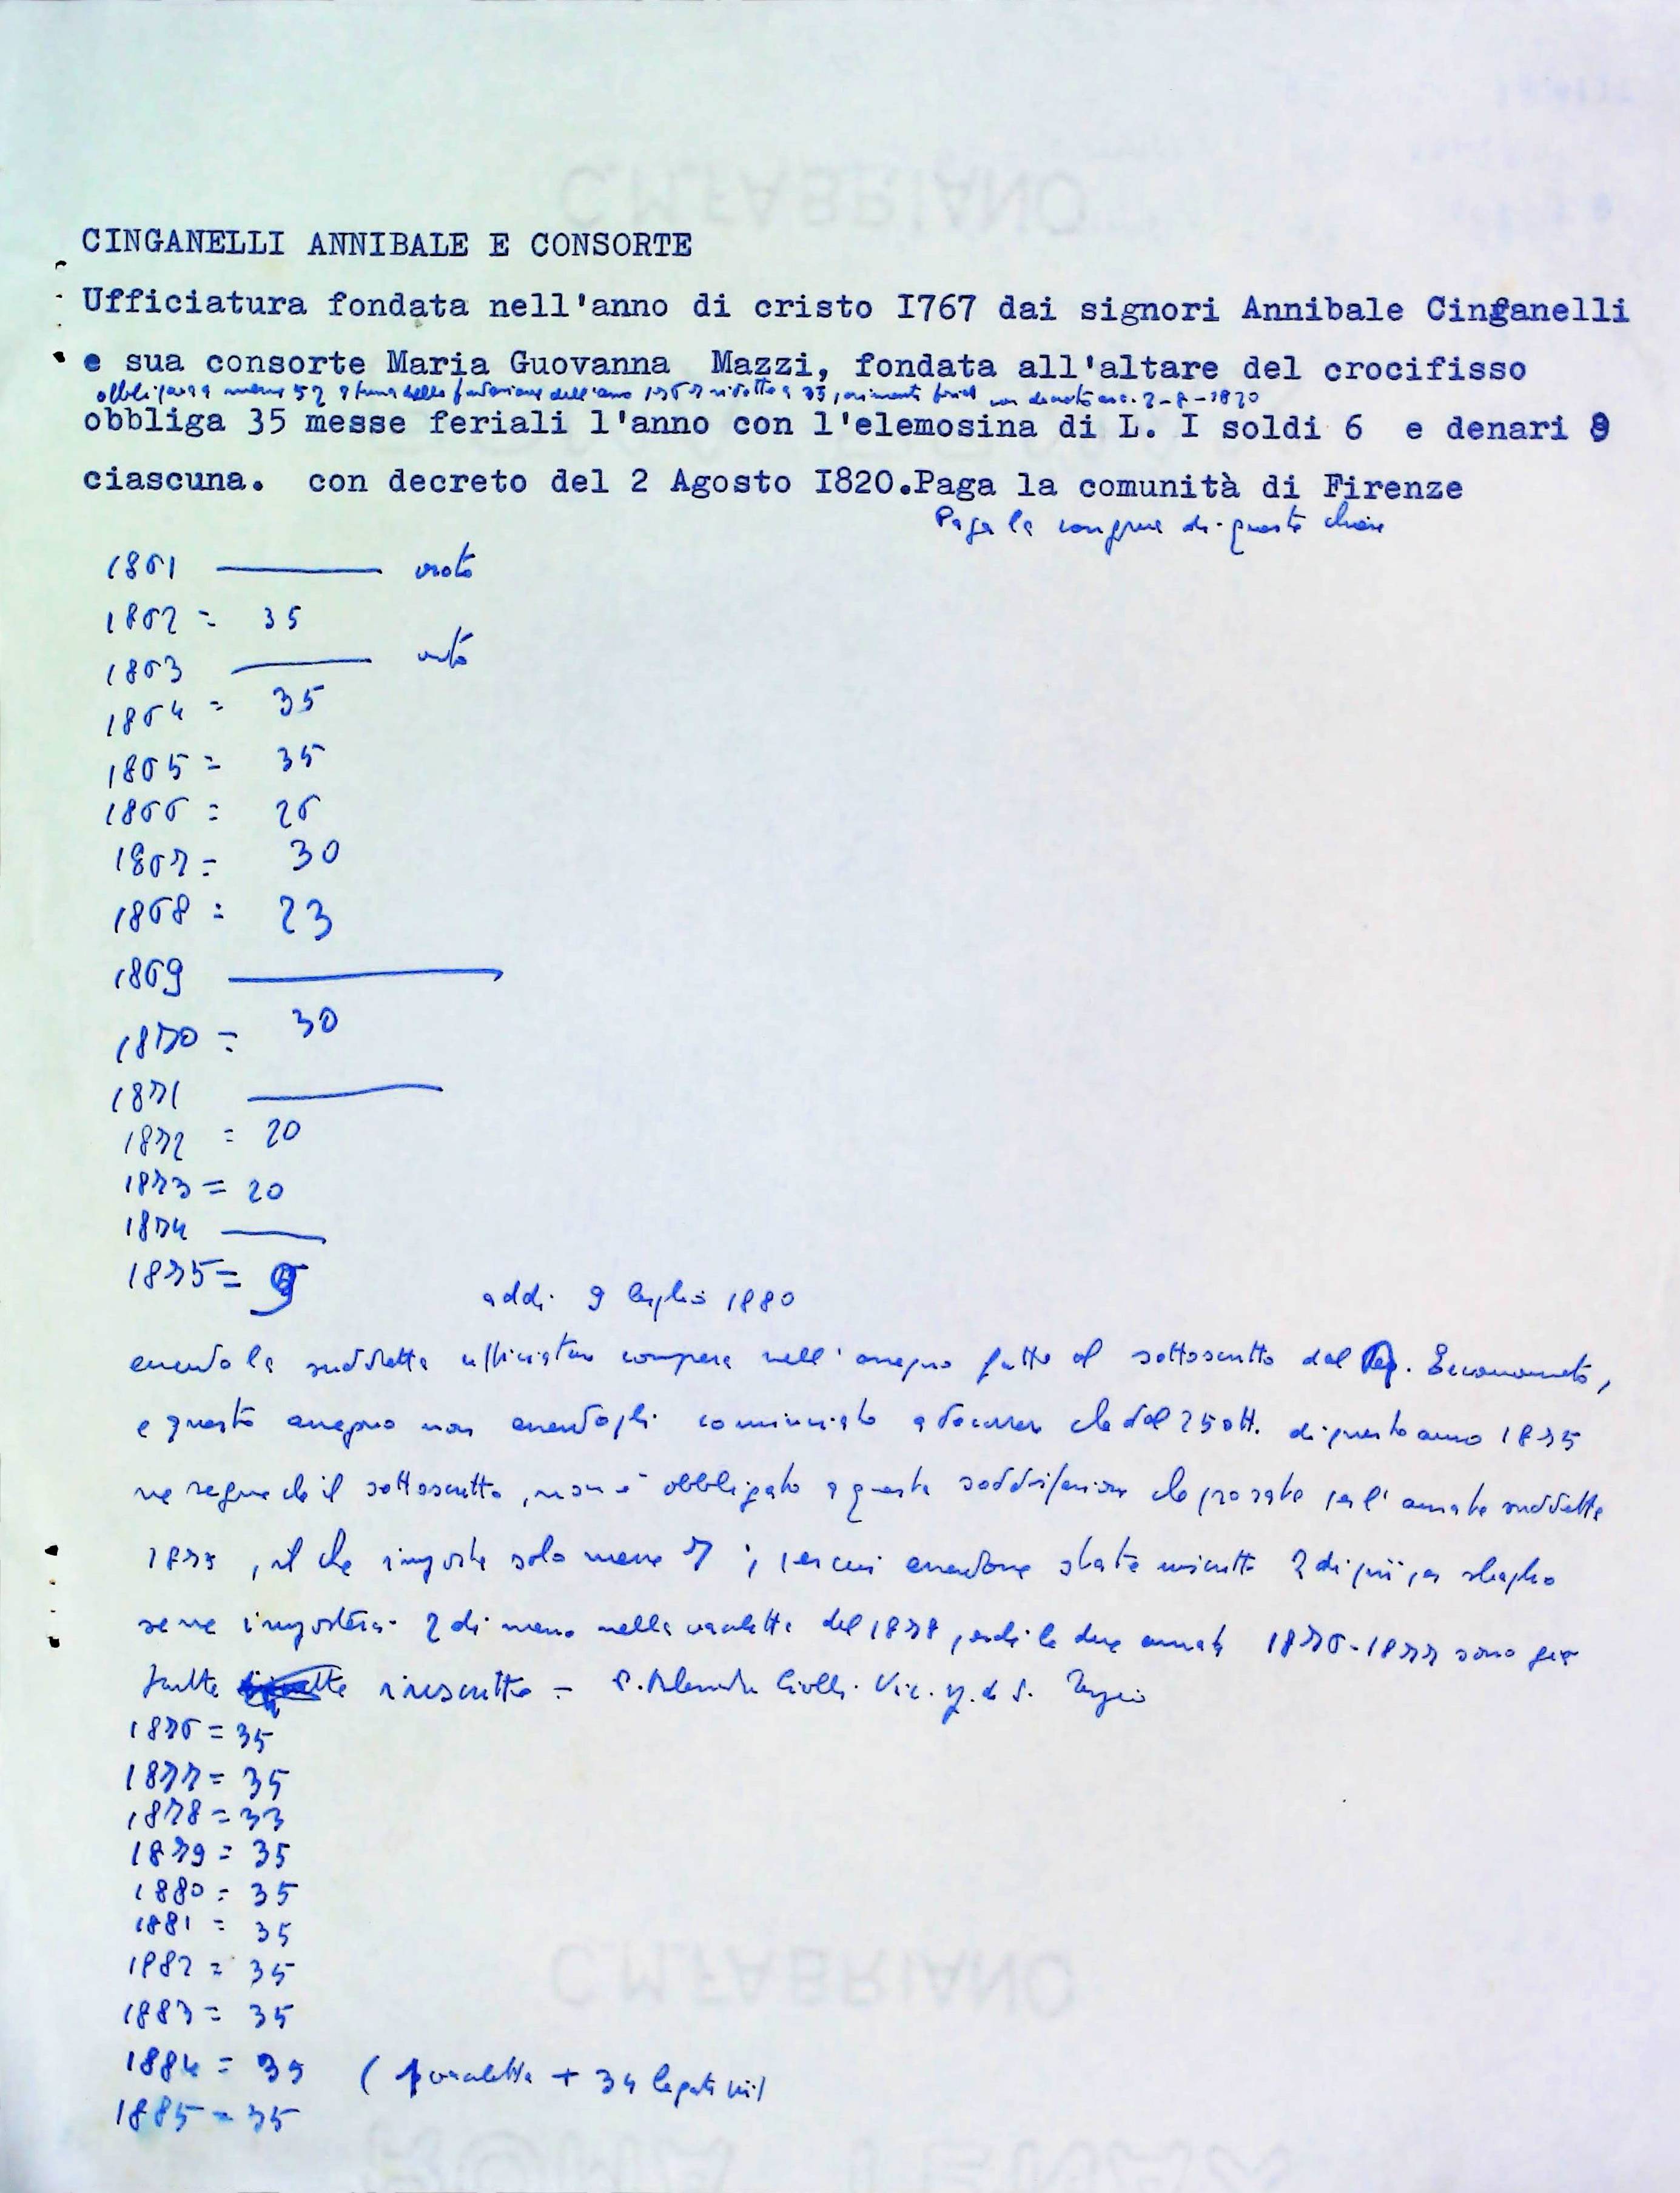 CINGANELLI ANNIBALE E CONSORTE
Ufficiatura fondata nell'anno di cristo I767 dai signori Annibale Cinganelli
e sua consorte Maria Guovanna Mazzi, fondata all'altare del crocifisso
messe 52 della fondazione dell'anno 1767 ridotte a 35, 2-8-1820
obbliga 35 messe feriali l'anno con l'elemosina di L. I soldi 6 e denari 8
ciascuna. con decreto del 2 Agosto I820.Paga la comunità di Firenze
Paga la congrua di questa chiesa
1861 vuoto
1862 = 35
1863 vuoto
1864 = 35
1865 = 35
1866 = 26
1867 = 30
1868 = 23
1869
1870 = 30
1871
1872 = 20
1873 = 20
1874
1875 = 9
addi 9 luglio 1880
essendo la suddetta ufficiatura compresa nell'assegno fatto al sottoscritto dal R. Economato,
e questo assegno non essendogli cominciato a decorrere che dal 25 ott. di questo anno 1875
ne segue che il sottoscritto, non è obbligato a questa soddisfazione che pro rata per l'annata suddetta
1875, il che importa solo messe 7; per cui essendone state inscritte 2 di più per sbaglio
se ne 2 di meno nella vacchetta del 1878, le due annate 1876-1877 sono già
tutte inscritte - P. Vic. di S.
1876 = 35
1877 = 35
1878 = 33
1879 = 35
1880 = 35
1881 = 35
1882 = 35
1883 = 35
1884 = 35 (1 vacchetta + 34 legati
1885 = 35
C.M.FABRIANO
C.M.FABRIANO
ROMA TENAX